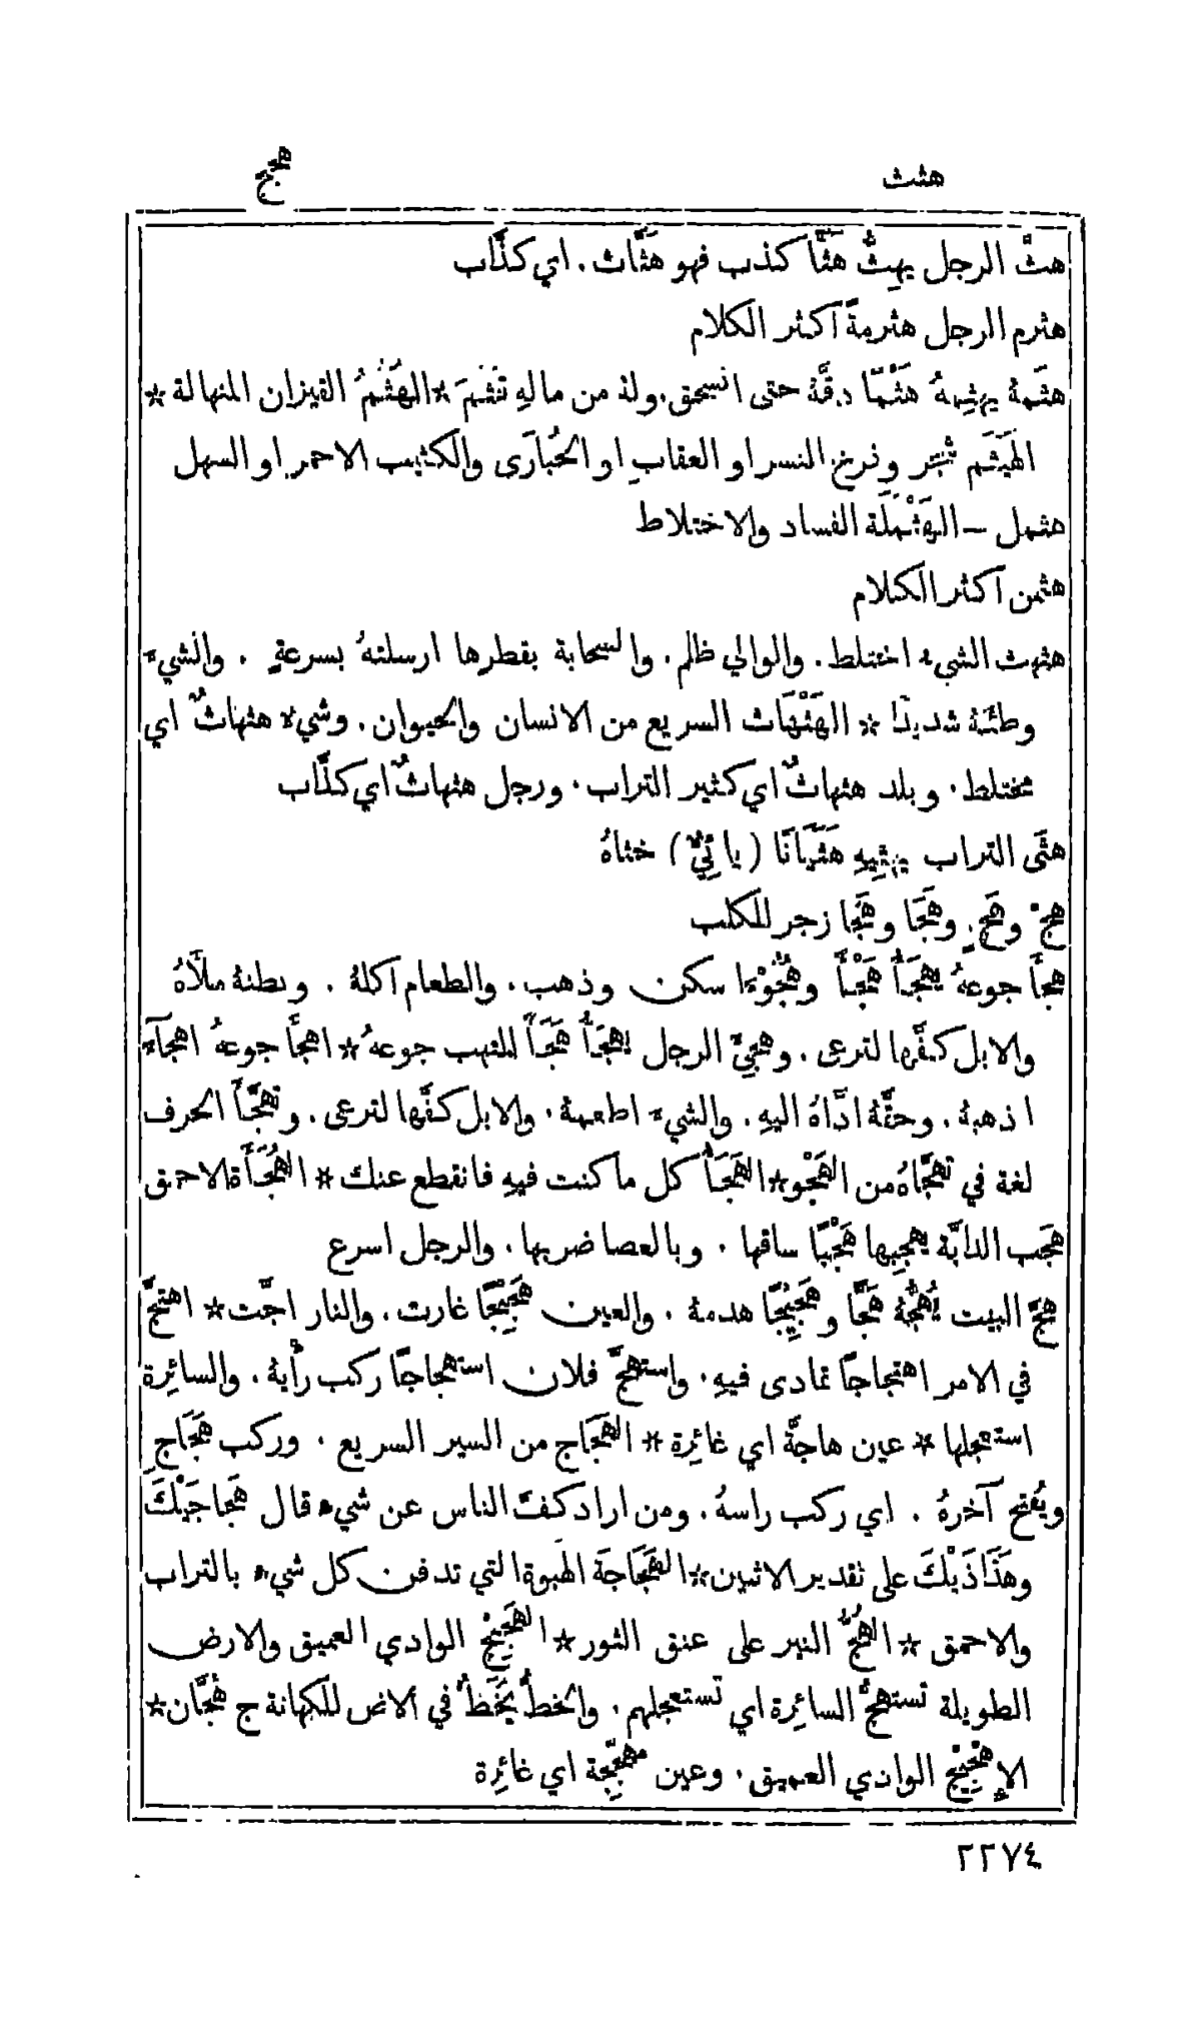 هثث
هجج
هثَّ الرجل يهِثُّ هَثًّا كذب فهو هَثَّاث. اي كذَّاب
هثرم الرجل هثرمةً اكثر الكلام
هثمهُ يهثِمهُ هَثْمًا دقَّهُ حتى انسحق. ولهُ من مالهِ قثم * الهُثُمُ القيزان المنهالة *
الهَيثَم شجر وفرخ النسر او العقاب او الحُبارَى والكثيب الاحمر او السهل
هثمل – الهَثْمَلَة الفساد والاختلاط
هثمن اكثر الكلام
هثهث الشيء اختلط. والوالي ظلم. والسحابة بقطرها ارسلتهُ بسرعةٍ . والشيءَ
وطئهُ شديدًا * الهَثْهَاث السريع من الانسان والحيوان. وشيء هثهاثٌ اي
مختلط. وبلد هثهاثٌ اي كثير التراب. ورجل هثهاثٌ اي كذَّاب
هثَى التراب يهثِيهِ هَثَيَانًا (يائيٌّ) حثاهُ
هَجْ وهَجٍ. وهَجَا وهَجًا زجر للكلب
هجأَ جوعهُ يهجَأُ هَجْأً وهُجُوْءًا سكن وذهب. والطعام اكلهُ . وبطنهُ ملأَهُ
والابل كفَّها لترعى. وهجِئَ الرجل يهجَأُ هَجَأً التهب جوعهُ * اهجأَ جوعهُ اهجآءً
اذهبهُ. وحقَّهُ ادَّاهُ اليهِ. والشيءَ اطعمهُ. والابل كفَّها لترعى. وتهجَّأَ الحرف
لغة في تهجَّاهُ من الهَجْو * الهَجَأُ كل ما كنت فيهِ فانقطع عنك * الهُجَأَة الاحمق
هجَب الدابَّة يهجِبها هَجْبًا ساقها . وبالعصا ضربها. والرجل اسرع
هجَّ البيت يَهُجُّهُ هَجًّا وهَجِيجًا هدمهُ . والعين هَجِيجًا غارت. والنار اجَّت * اهتجَّ
في الامر اهتجاجًا تمادى فيهِ. واستهجَّ فلان استهجاجًا ركب رأيهُ. والسائِرة
استعجلها * عين هاجَّة اي غائِرة * الهَجَاج من السير السريع . وركب هَجَاجِ
ويُفتح آخرهُ . اي ركب راسهُ. ومن اراد كفَّ الناس عن شيءٍ قال هَجاجَيْكَ
وهَذَاذَيْكَ على تقدير الاثنين * الهَجَاجَة الهَبوة التي تدفن كل شيءٍ بالتراب
والاحمق * الهُجُّ النير على عنق الثور * الهَجِيْج الوادي العميق والارض
الطويلة تستهجُّ السائِرة اي تستعجلهم. والخطُّ يُخَطُّ في الارض للكهانة ج هُجَّان *
الإِهْجِيْج الوادي العميق. وعين مهجِّجة اي غائِرة
٢٢٧٤